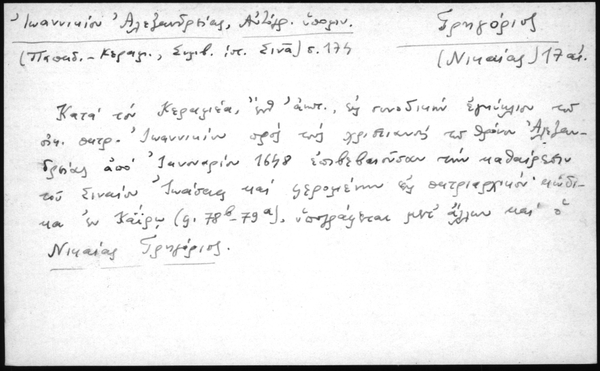 Ἰωαννικίου Ἀλεξανδρείας, Αὐτόγρ. ὑπόμν.
(Παπαδ. - Κεραμ., Συμβ. ἱστ. Σινᾶ) σ. 174
Γρηγόριος
(Νικαίας) 17 αἰ.
Κατὰ τὸν Κεραμέα, ἔνθ' ἀνωτ., εἰς συνοδικὴν ἐγκύκλιον τοῦ
οἰκ. πατρ. Ἰωαννικίου πρὸς τοὺς χριστιανοὺς τοῦ θρόνου Ἀλεξαν-
δρείας ἀπὸ Ἰανουαρίου 1648 ἐπιβεβαιοῦσαν τὴν καθαίρεσιν
τοῦ Σιναίου Ἰωάσαφ καὶ φερομένην εἰς πατριαρχικὸν κώδι-
κα ἐν Καΐρῳ (φ. 78β-79α), ὑπογράφεται μετ' ἄλλων καὶ ὁ
Νικαίας Γρηγόριος.